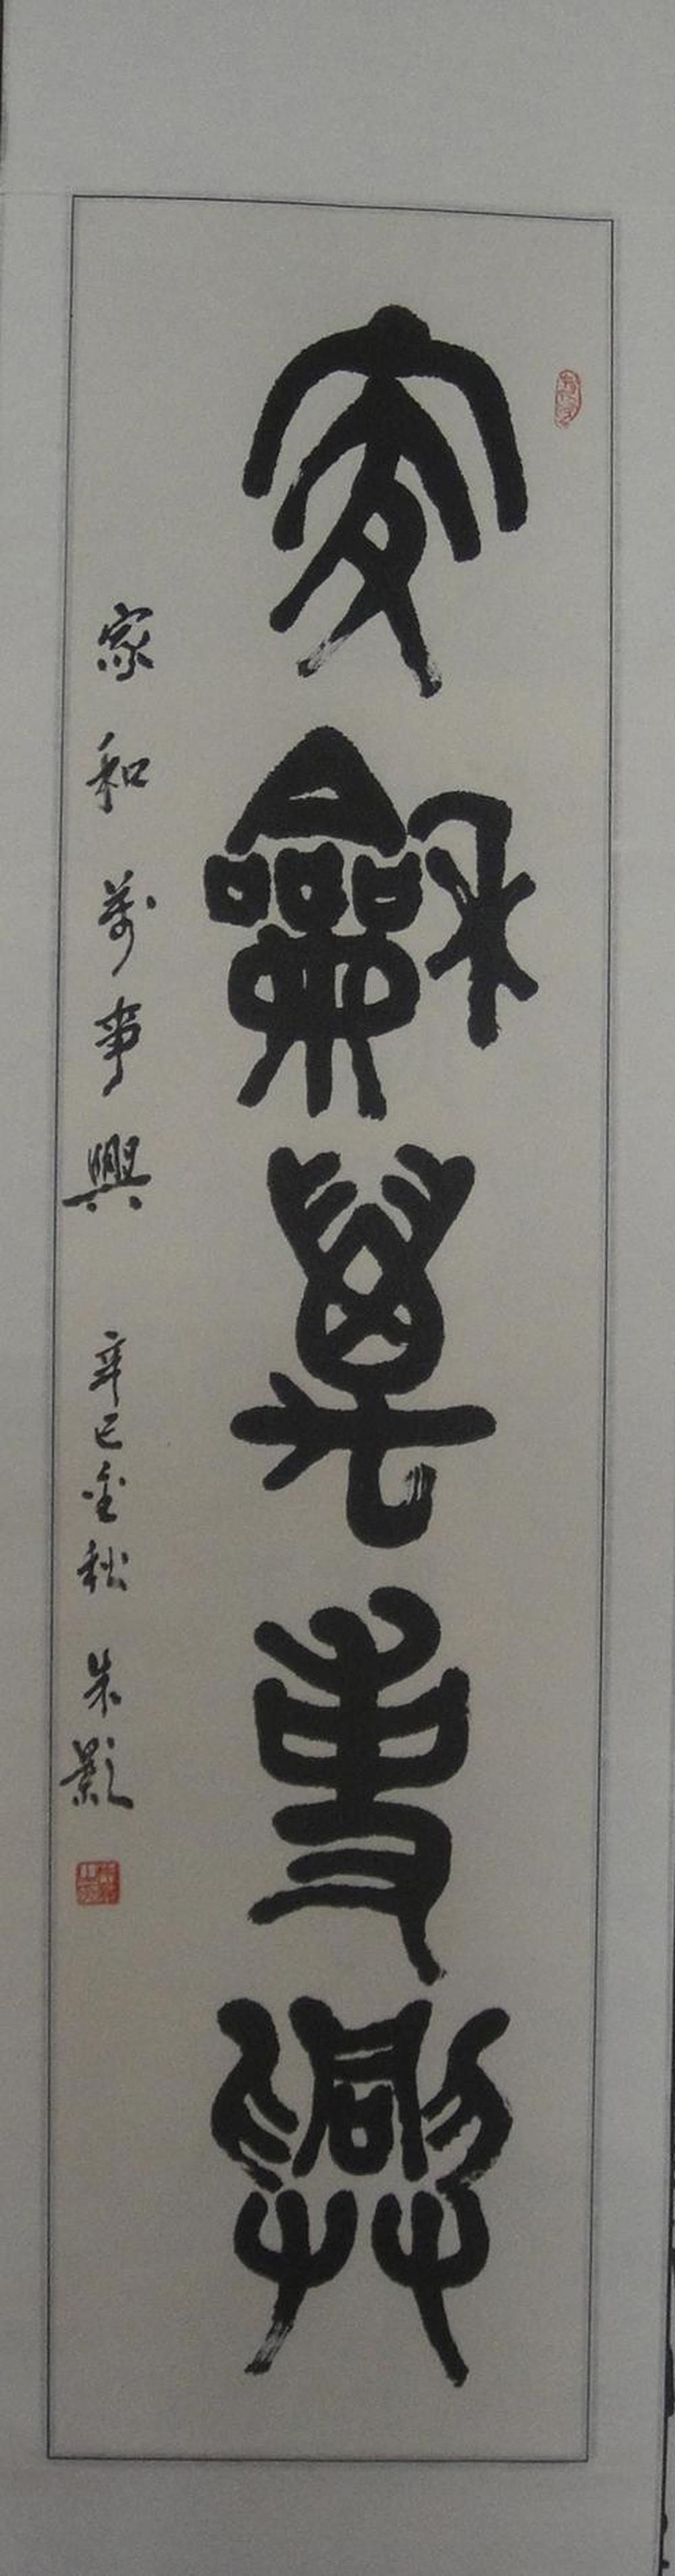 家龢萬事興
家和萬事興 辛巳金秋 朱影